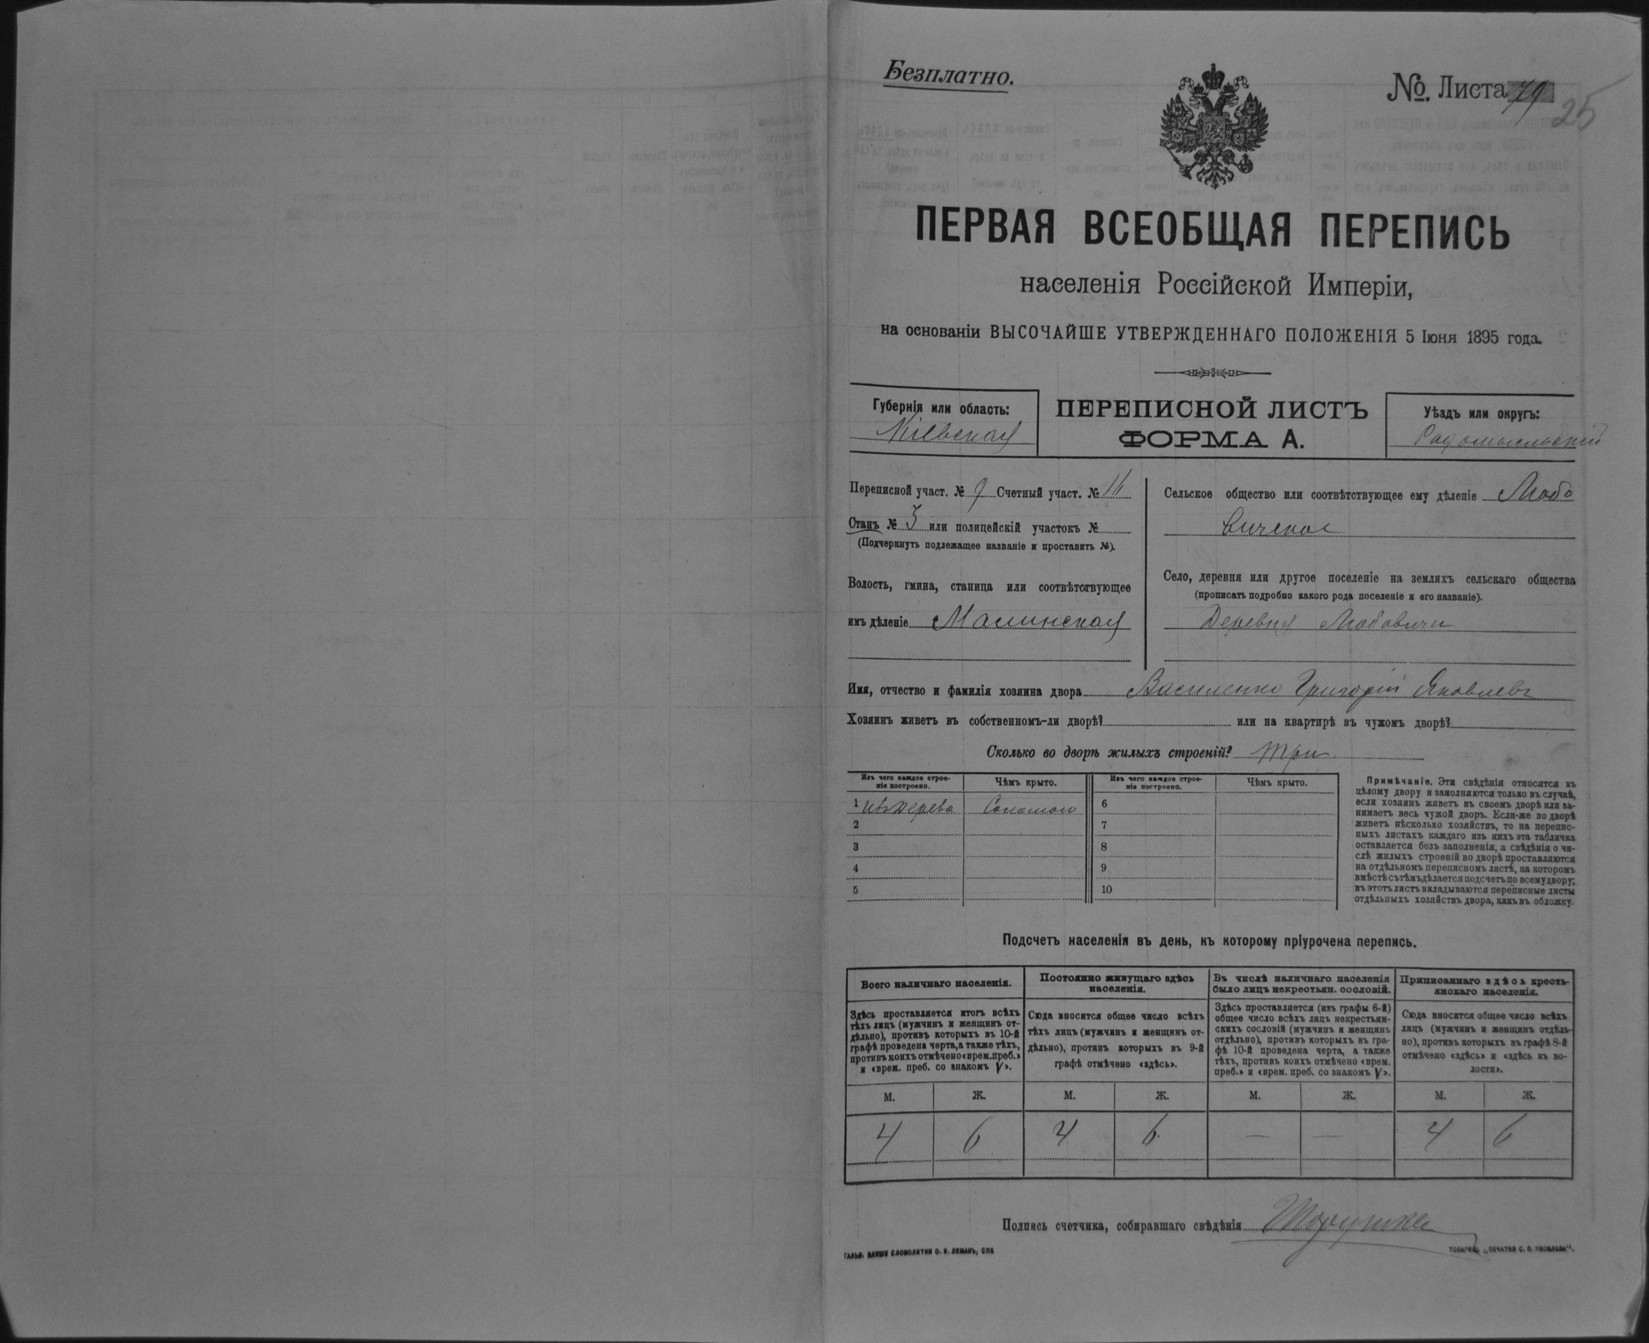 Безплатно.
№. Листа 79
25
ПЕРВАЯ ВСЕОБЩАЯ ПЕРЕПИСЬ
населенія Россійской Имперіи,
на основаніи ВЫСОЧАЙШЕ УТВЕРЖДЕННАГО ПОЛОЖЕНІЯ 5 Іюня 1895 года.
Губернія или область:
Кіевская
ПЕРЕПИСНОЙ ЛИСТЪ
ФОРМА А.
Уѣздъ или округъ:
Радомысльскій
Переписной участ. № 9 Счетный участ. № 16
Станъ № 3 или полицейскій участокъ №
(Подчеркнуть подлежащее названіе и проставить №).
Волость, гмина, станица или соотвѣтствующее
имъ дѣленіе Малинская
Сельское общество или соотвѣтствующее ему дѣленіе Любо
вичское
Село, деревня или другое поселеніе на земляхъ сельскаго общества
(прописать подробно какого рода поселеніе и его названіе).
Деревня Любовичи
Имя, отчество и фамилія хозяина двора Василенко Григорій Яковлевъ
Хозяинъ живетъ въ собственномъ-ли дворѣ? или на квартирѣ въ чужомъ дворѣ?
Сколько во дворѣ жилыхъ строеній? три
Изъ чего каждое строе-
ніе построено.
Чѣмъ крыто.
Изъ чего каждое строе-
ніе построено.
Чѣмъ крыто.
1 изъ дерева Соломою 6
2 7
3 8
4 9
5 10
Примѣчаніе. Эти свѣдѣнія относятся къ
цѣлому двору и заполняются только въ случаѣ,
если хозяинъ живетъ въ своемъ дворѣ или за-
нимаетъ весь чужой дворъ. Если-же во дворѣ
живетъ нѣсколько хозяйствъ, то на перепис-
ныхъ листахъ каждаго изъ нихъ эта табличка
оставляется безъ заполненія, а свѣдѣнія о чи-
слѣ жилыхъ строеній во дворѣ проставляются
на отдѣльномъ переписномъ листѣ, на которомъ
вмѣстѣ съ тѣмъ дѣлается подсчетъ по всему двору;
въ этотъ листъ вкладываются переписные листы
отдѣльныхъ хозяйствъ двора, какъ въ обложку.
Подсчетъ населенія въ день, къ которому пріурочена перепись.
Всего наличнаго населенія.
Здѣсь проставляется итогъ всѣхъ
тѣхъ лицъ (мужчинъ и женщинъ от-
дѣльно), противъ которыхъ въ 10-й
графѣ проведена черта, а также тѣхъ,
противъ коихъ отмѣчено «врем. преб.»
и «врем. преб. со знакомъ V».
Постоянно живущаго здѣсь
населенія.
Сюда вносится общее число всѣхъ
тѣхъ лицъ (мужчинъ и женщинъ от-
дѣльно), противъ которыхъ въ 9-й
графѣ отмѣчено «здѣсь».
Въ числѣ наличнаго населенія
было лицъ некрестьян. сословій.
Здѣсь проставляется (изъ графы 6-й)
общее число всѣхъ лицъ некрестьян-
скихъ сословій (мужчинъ и женщинъ
отдѣльно), противъ которыхъ въ гра-
фѣ 10-й проведена черта, а также
тѣхъ, противъ коихъ отмѣчено «врем.
преб.» и «врем. преб. со знакомъ V».
Приписаннаго здѣсь кресть-
янскаго населенія.
Сюда вносится общее число всѣхъ
лицъ (мужчинъ и женщинъ отдѣль-
но), противъ которыхъ въ графѣ 8-й
отмѣчено «здѣсь» и «здѣсь къ во-
лости».
М. Ж. М. Ж. М. Ж. М. Ж.
4 6 4 6 — — 4 6
Подпись счетчика, собиравшаго свѣдѣнія